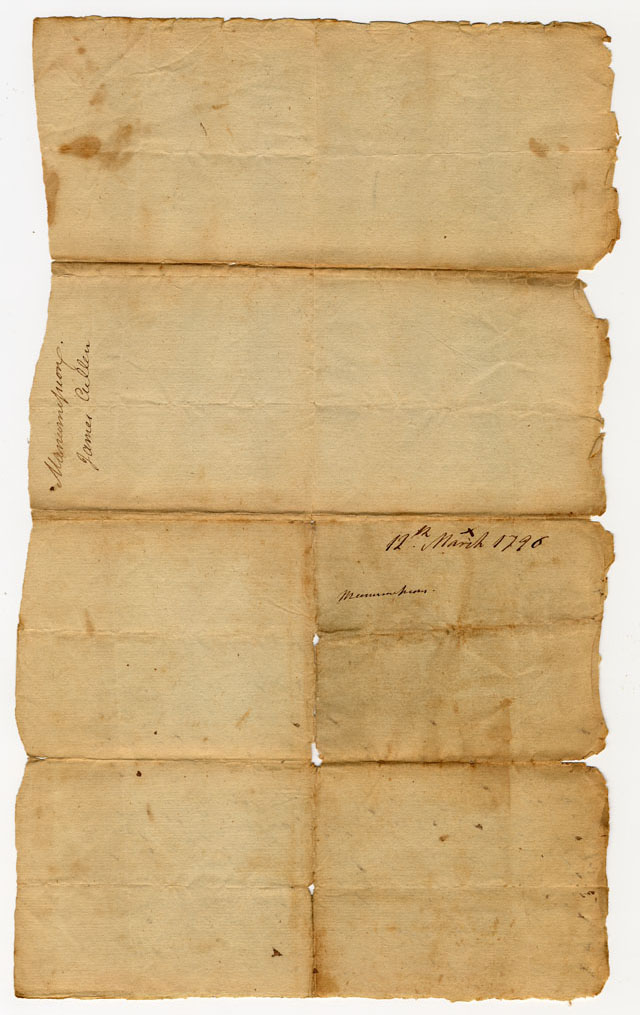 Manumission.
James Cullen
12th. March 1796
Manumission.